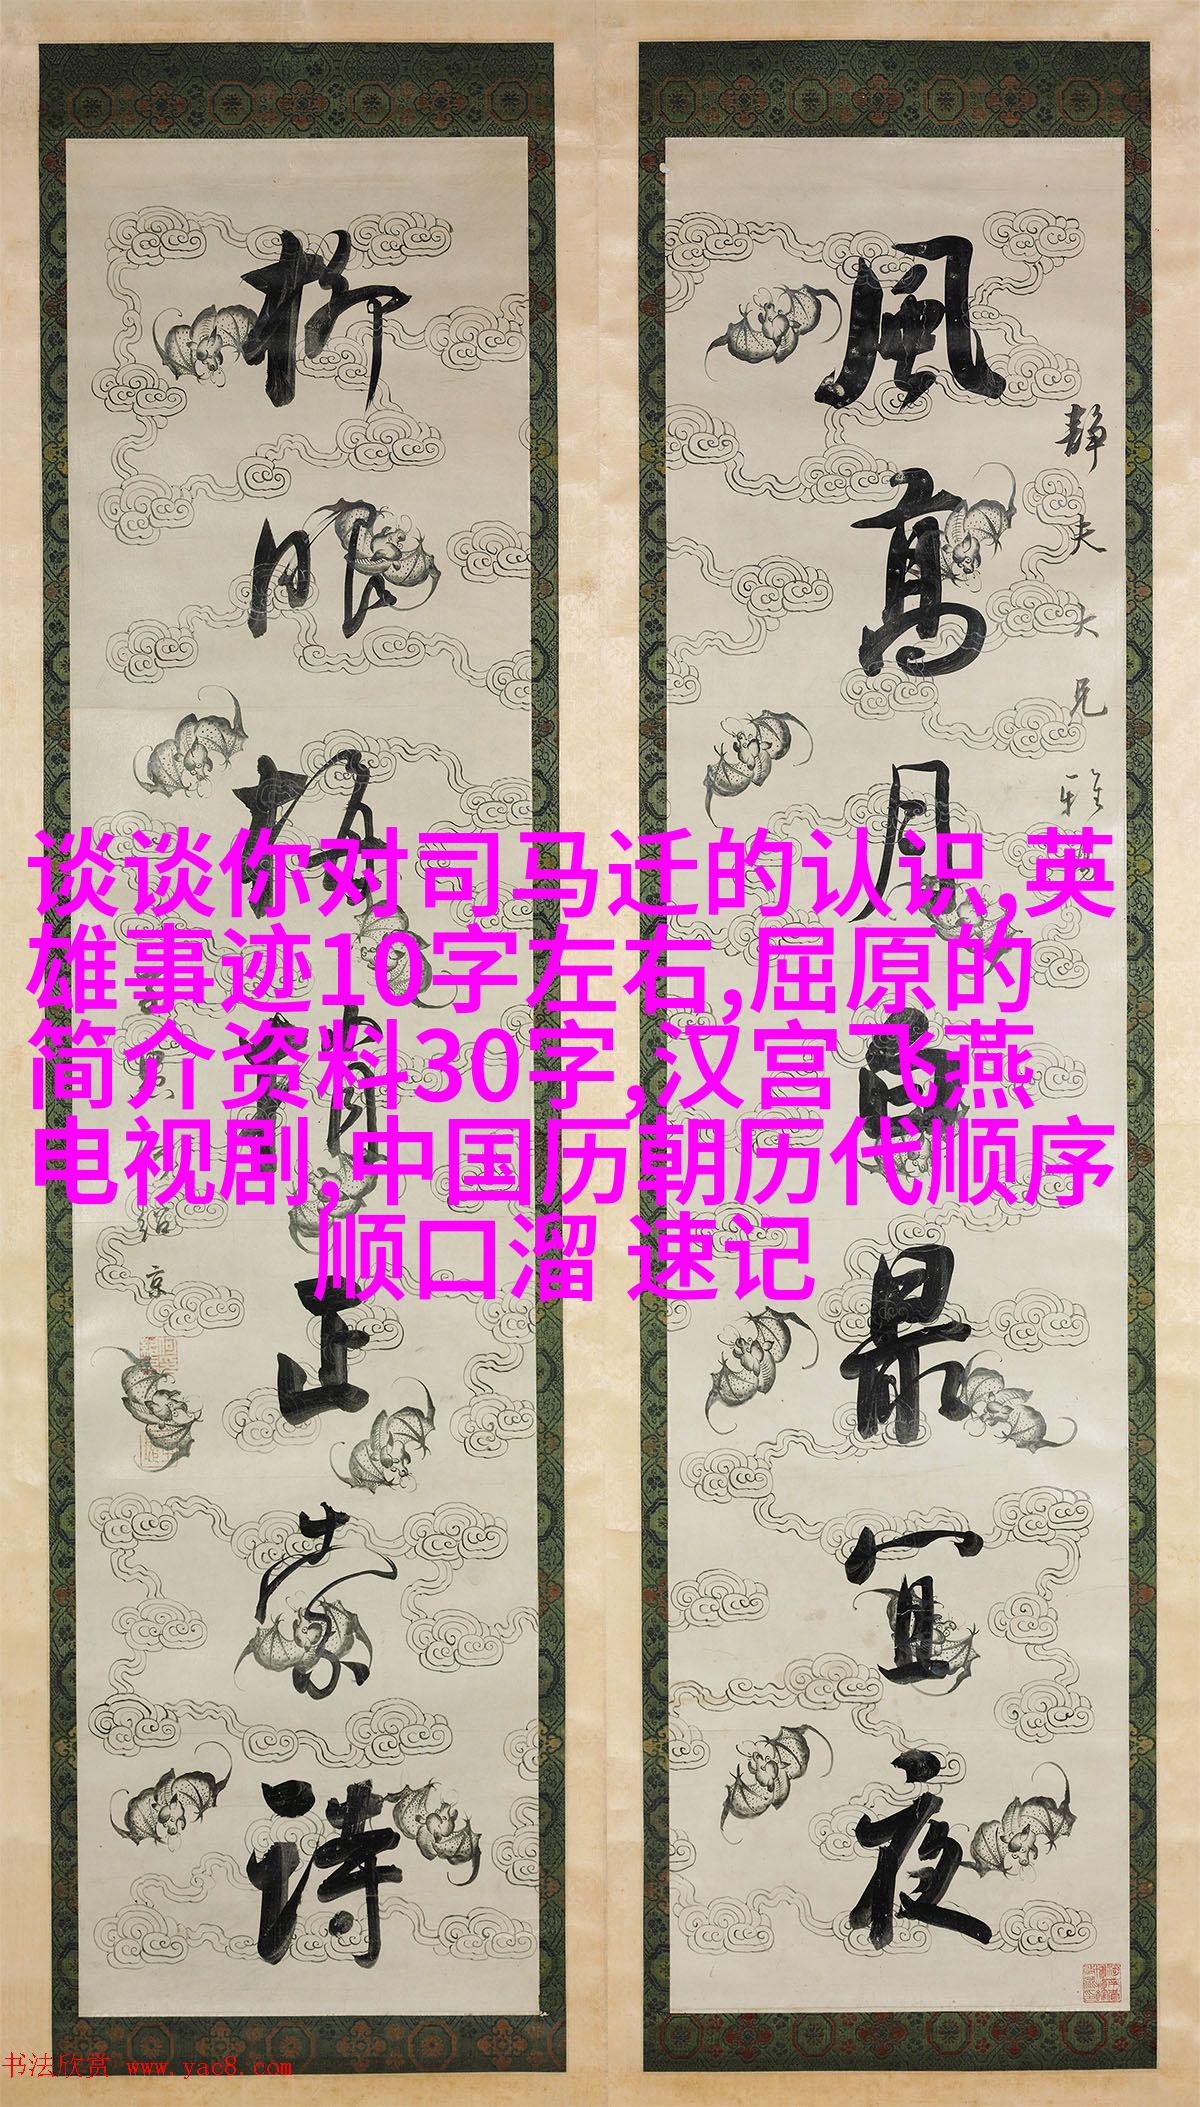 谈谈你对司马迁的认识,英
雄事迹10字左右,屈原的
简介资料30字,汉宫飞燕
电视剧,中国历朝历代顺序
顺口溜 速记
静夫大兄雅
風高月最宜夜
柳眼梅正索詩
紹京
书法欣赏 www.yac8.com